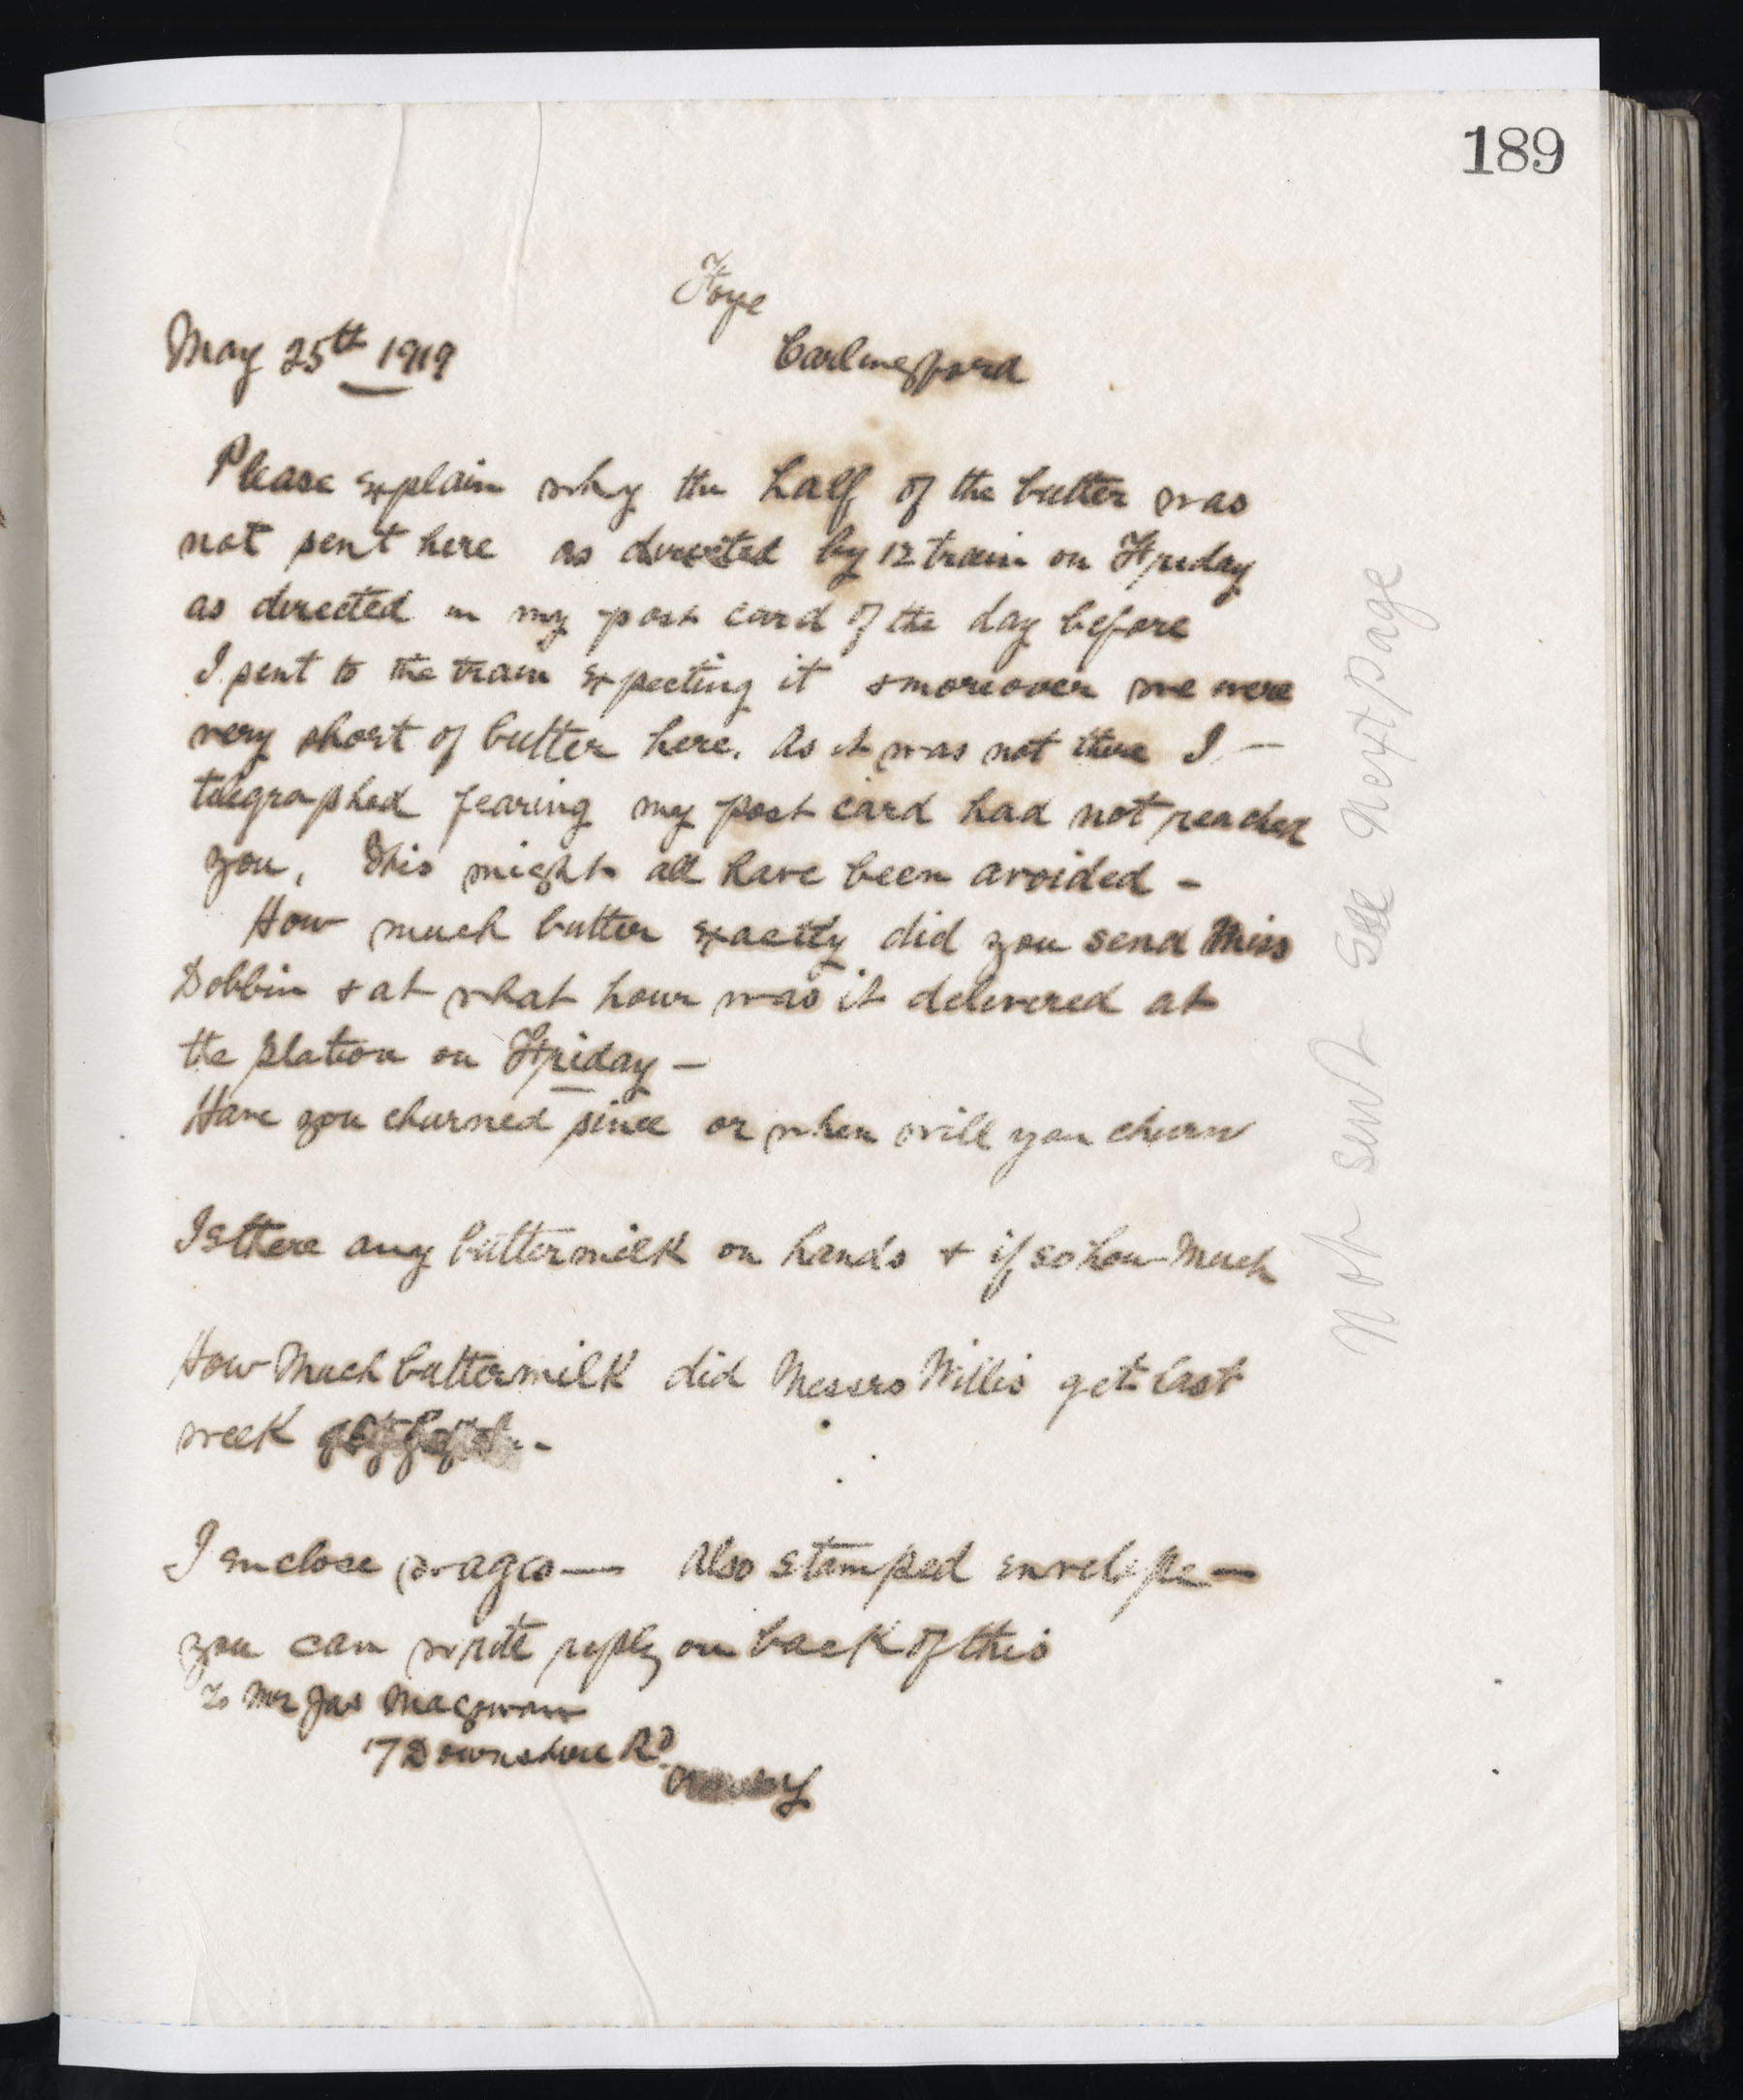 189
Foye
May 25th 1919
Carlingford
Please explain why the half of the butter was
not sent here as directed by 12 train on Friday
as directed in my post card of the day before
I sent to the train expecting it & moreover we were
very short of butter here. As it was not there I —
telegraphed fearing my post card had not reached
you, This might all have been avoided -
How much butter exactly did you send Miss
Dobbin & at what hour was it delivered at
the station on Friday —
Have you churned since or when will you churn
Is there any buttermilk on hands & if so how much
How Much buttermilk did Messrs Willis get last
week
I enclose wages — Also stamped envelope —
you can write reply on back of this
To Mr Jas Magowan
17 Downshire Rd
Newry
Not sent See Next page